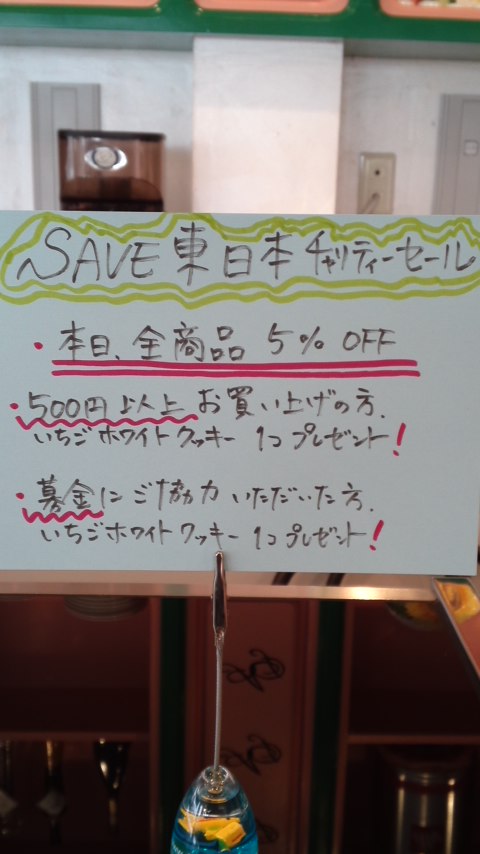 SAVE 東日本 チャリティーセール
・本日、全商品 5% OFF
・500円以上 お買い上げの方、
いちごホワイトクッキー 1コ プレゼント!
・募金に ご協力 いただいた方、
いちごホワイトクッキー 1コ プレゼント!